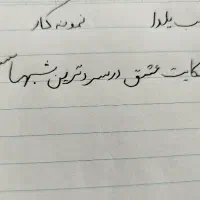 یلدا نمونه کار
عشق در سردترین شبها